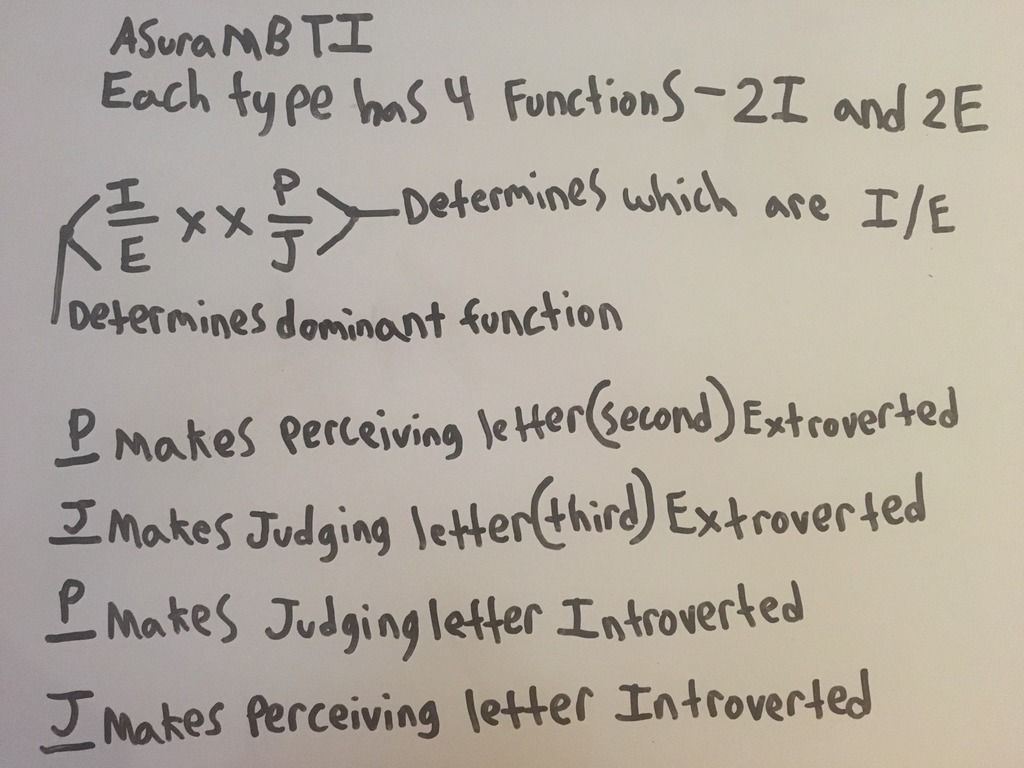 ASuraMBTI
Each type has 4 Functions - 2I and 2E
I/E x x P/J - Determines which are I/E
Determines dominant function
P Makes Perceiving letter (second) Extroverted
J Makes Judging letter (third) Extroverted
P Makes Judging letter Introverted
J Makes Perceiving letter Introverted